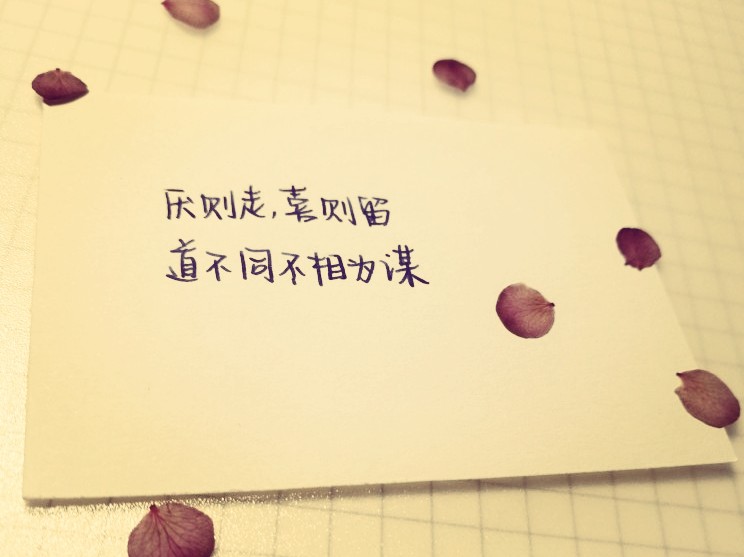 厌则走,喜则留
道不同不相为谋